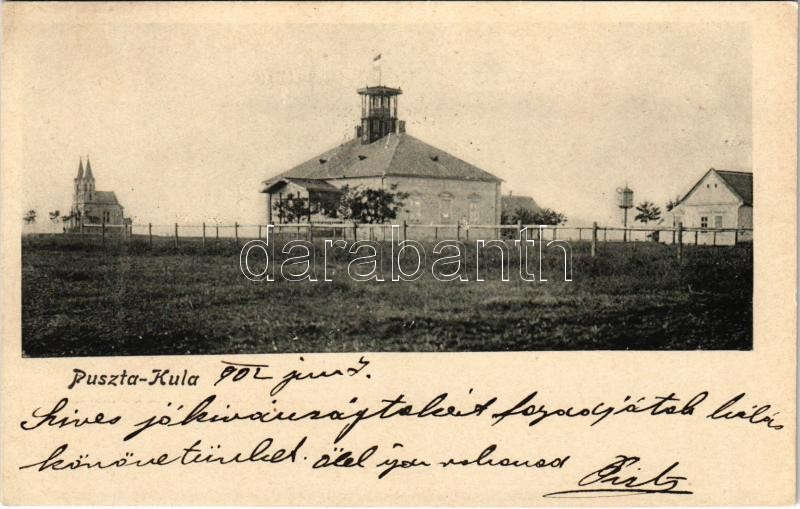 darabanth
Puszta-Kula 902 jun 7.
Szives jókivánságtokért fogadjátok hálás
köszönetünket. Ölel igaz rokonod